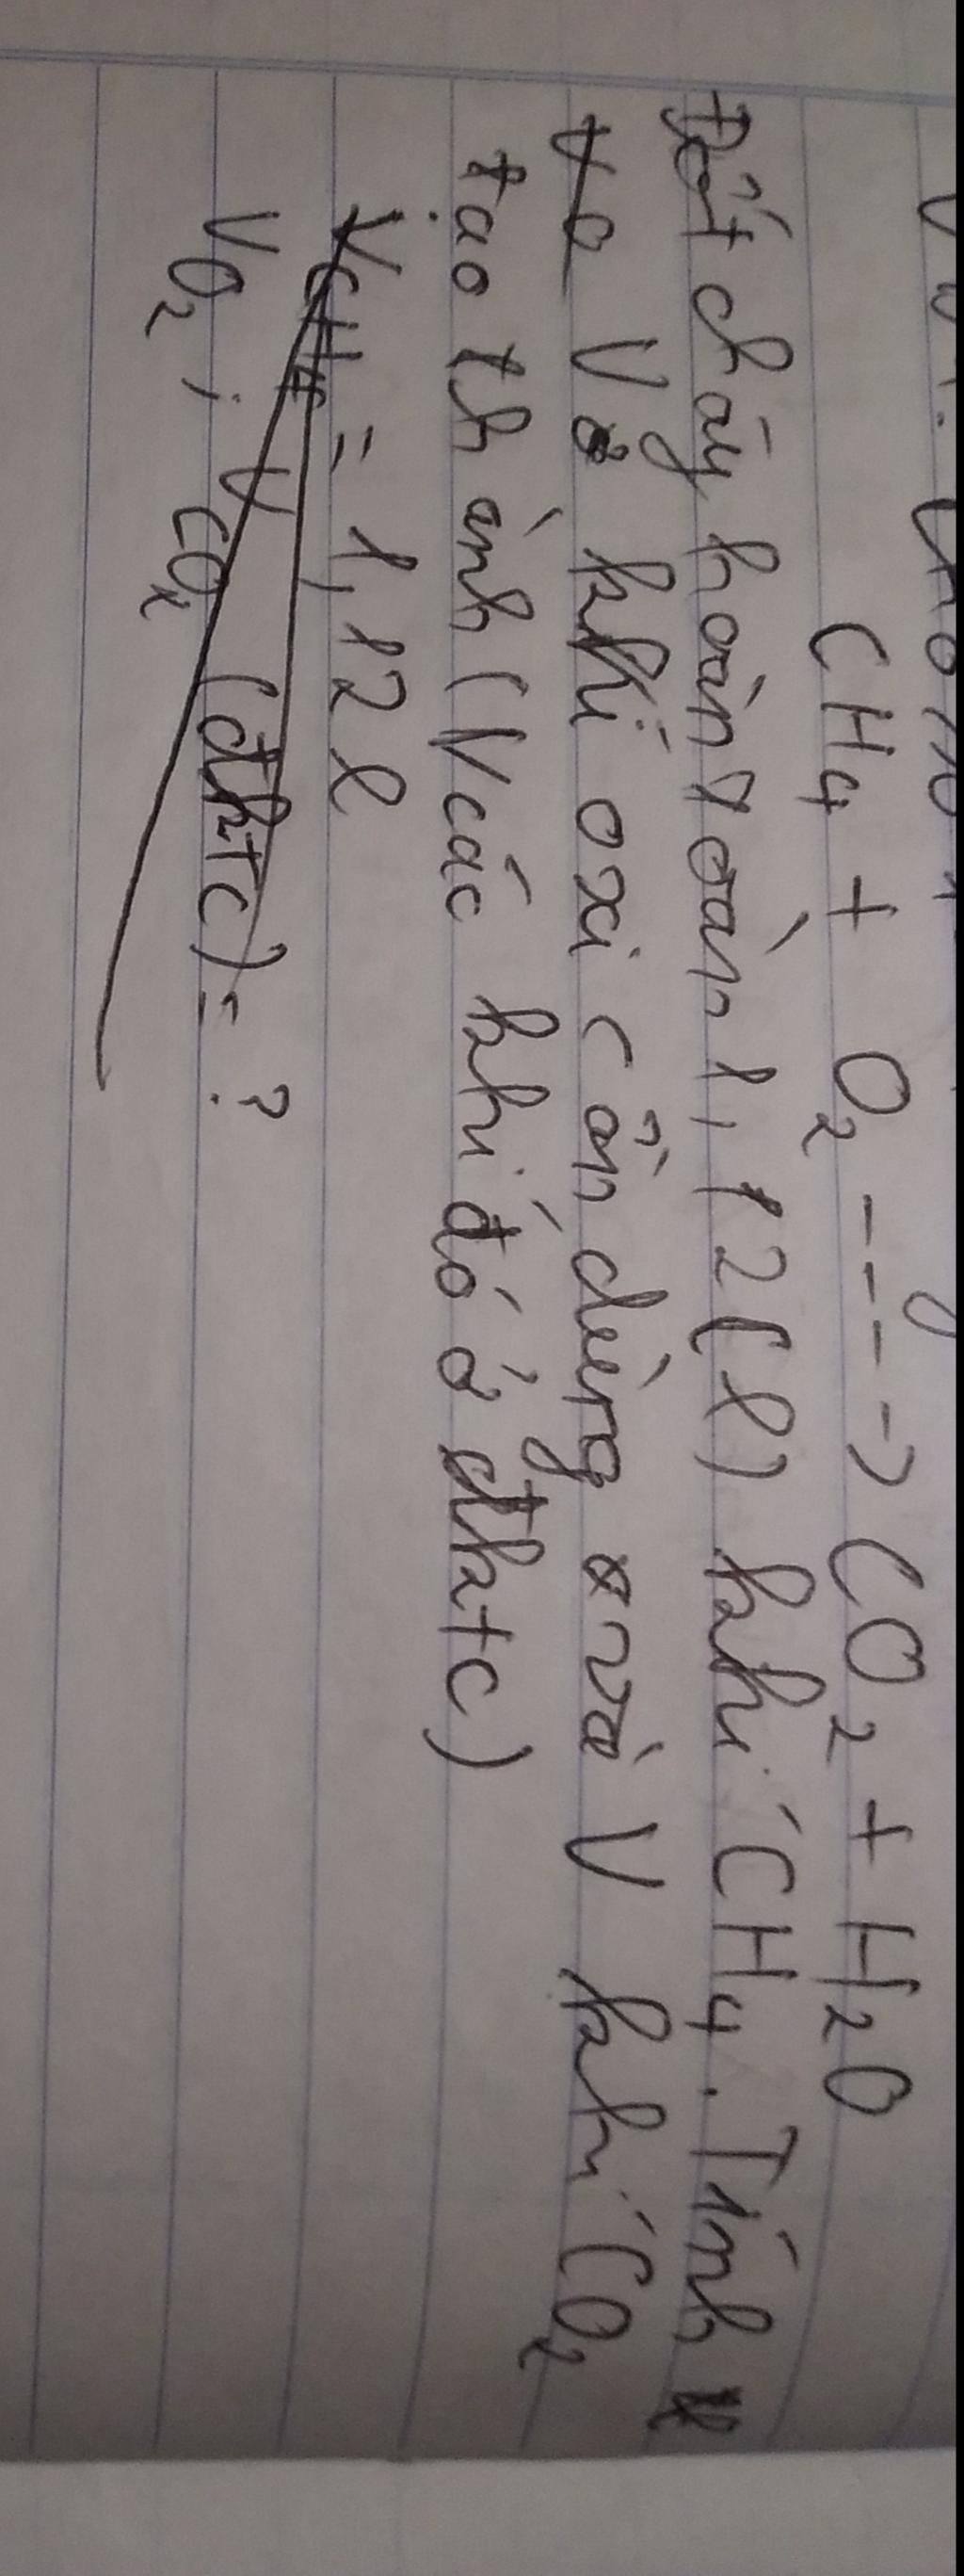 CH4 + O2 ---> CO2 + H2O
Đốt cháy hoàn toàn 1,12(l) khí CH4. Tính
V khí oxi cần dùng và V khí CO2
tạo thành (V các khí đó ở đktc)
VCH4 = 1,12 l
VO2; VCO2 (đktc) = ?